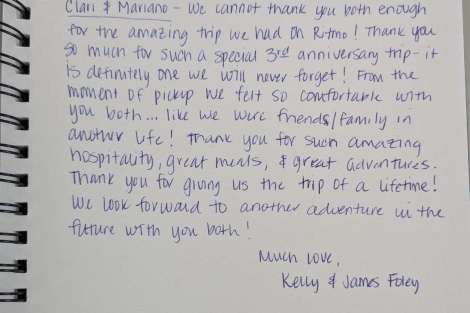 Clari & Mariano - We cannot thank you both enough
for the amazing trip we had on Ritmo! Thank you
so much for such a special 3rd anniversary trip - it
is definitely one we will never forget! From the
moment of pickup we felt so comfortable with
you both... like we were friends/family in
another life! Thank you for such amazing
hospitality, great meals, & great adventures.
Thank you for giving us the trip of a lifetime!
We look forward to another adventure in the
future with you both!
Much love,
Kelly & James Foley